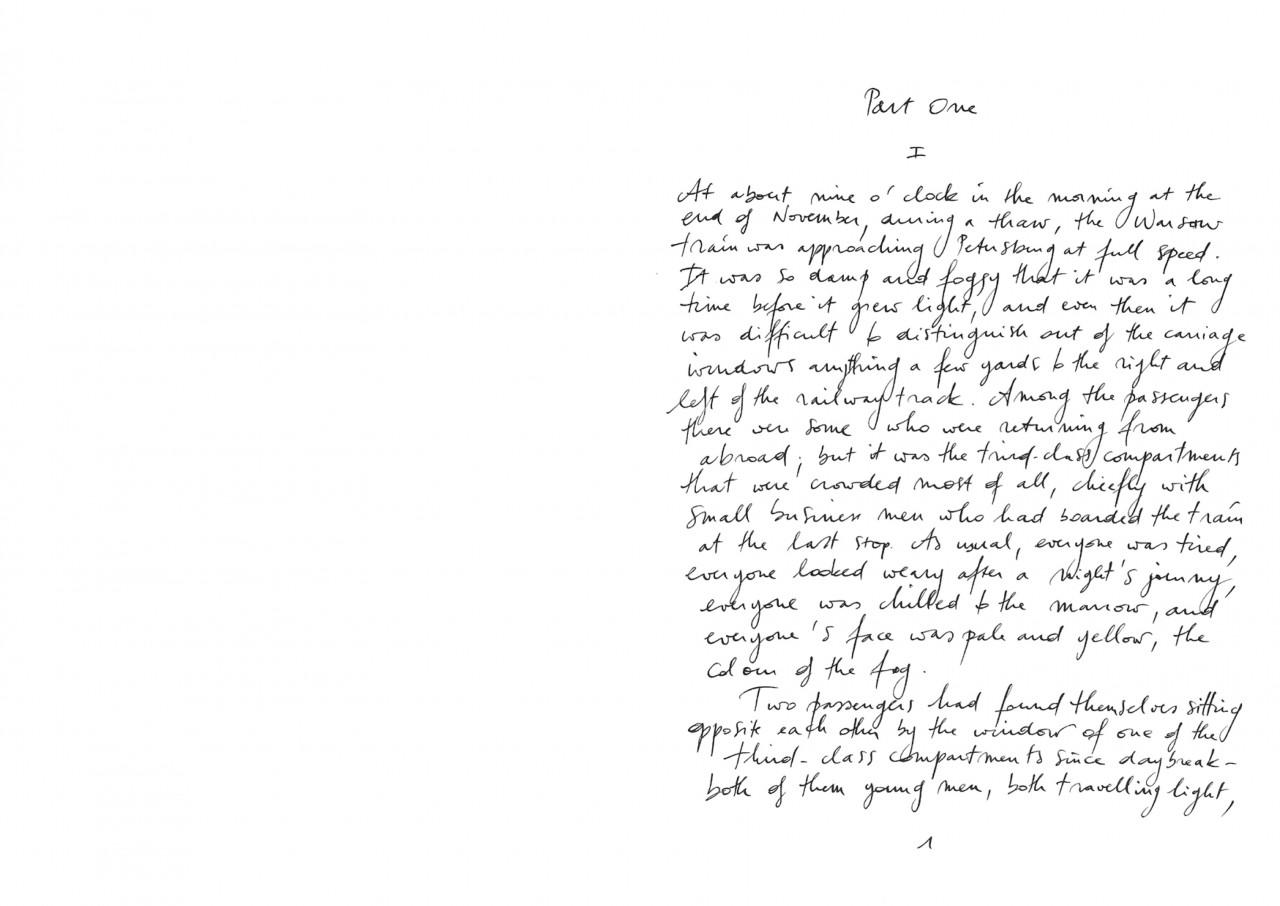 Part One
I
At about nine o'clock in the morning at the
end of November, during a thaw, the Warsaw
train was approaching Petersburg at full speed.
It was so damp and foggy that it was a long
time before it grew light, and even then it
was difficult to distinguish out of the carriage
windows anything a few yards to the right and
left of the railway track. Among the passengers
there were some who were returning from
abroad; but it was the third-class compartments
that were crowded most of all, chiefly with
small business men who had boarded the train
at the last stop. As usual, everyone was tired,
everyone looked weary after a night's journey,
everyone was chilled to the marrow, and
everyone's face was pale and yellow, the
colour of the fog.
Two passengers had found themselves sitting
opposite each other by the window of one of the
third-class compartments since daybreak-
both of them young men, both travelling light,
1